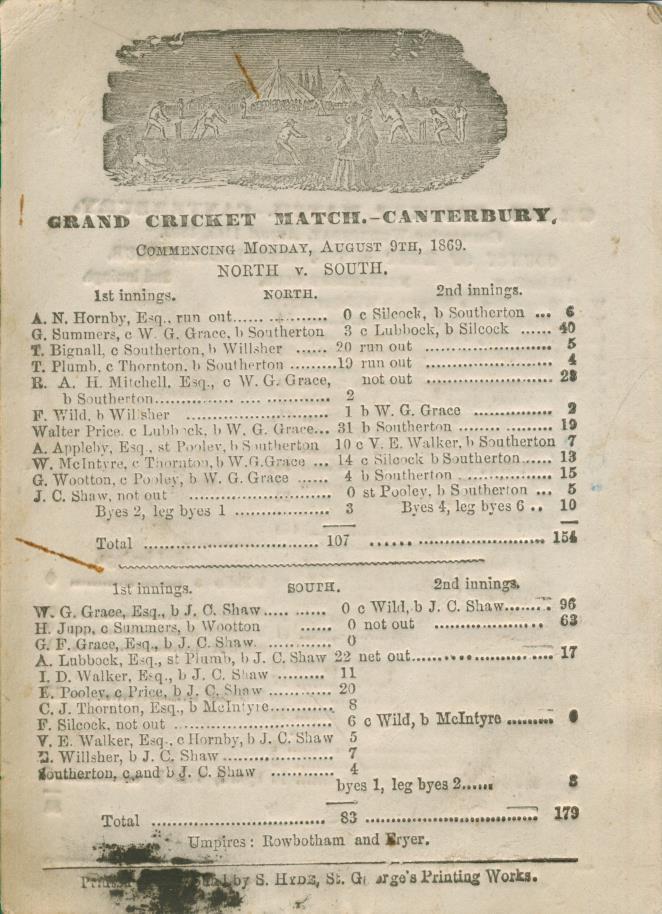 GRAND CRICKET MATCH.-CANTERBURY.
COMMENCING MONDAY, AUGUST 9TH, 1869.
NORTH v. SOUTH.
1st innings. NORTH. 2nd innings.
A. N. Hornby, Esq., run out..... .............. 0 c Silcock, b Southerton ... 6
G. Summers, c W. G. Grace, b Southerton 3 c Lubbock, b Silcock ...... 40
T. Bignall, c Southerton, b Willsher ...... 20 run out .................... 5
T. Plumb, c Thornton, b Southerton ........19 run out .................... 4
R. A. H. Mitchell, Esq., c W. G. Grace, not out .................... 28
b Southerton............... .... ............ 2
F. Wild, b Willsher ........................ 1 b W. G. Grace .............. 2
Walter Price, c Lubbock, b W. G. Grace... 31 b Southerton ........ ........ 19
A. Appleby, Esq., st Pooley, b Southerton 10 c V. E. Walker, b Southerton 7
W. McIntyre, c Thornton, b W.G.Grace ... 14 c Silcock b Southerton...... 13
G. Wootton, c Pooley, b W. G. Grace ...... 4 b Southerton ................ 15
J. C. Shaw, not out ........................ 0 st Pooley, b Southerton ... 5
Byes 2, leg byes 1 .................. 3 Byes 4, leg byes 6 .. 10
Total .............................. 107 ...... ..................... 154
1st innings. SOUTH. 2nd innings.
W. G. Grace, Esq., b J. C. Shaw..... ...... 0 c Wild, b J. C. Shaw........ 96
H. Jupp, c Summers, b Wootton ...... 0 not out .................... 63
G. F. Grace, Esq., b J. C. Shaw. ............ 0
A. Lubbock, Esq., st Plumb, b J. C. Shaw 22 not out........................ 17
I. D. Walker, Esq., b J. C. Shaw ......... 11
E. Pooley, c Price, b J. C. Shaw ............ 20
C. J. Thornton, Esq., b McIntyre............ 8
F. Silcock, not out ........................ 6 c Wild, b McIntyre .........
V. E. Walker, Esq., c Hornby, b J. C. Shaw 5
Willsher, b J. C. Shaw ..................... 7
Southerton, c and b J. C. Shaw ............ 4
byes 1, leg byes 2...... 3
Total .............................. 83 .............................. 179
Umpires: Rowbotham and Fryer.
by S. HYDE, St. George's Printing Works.